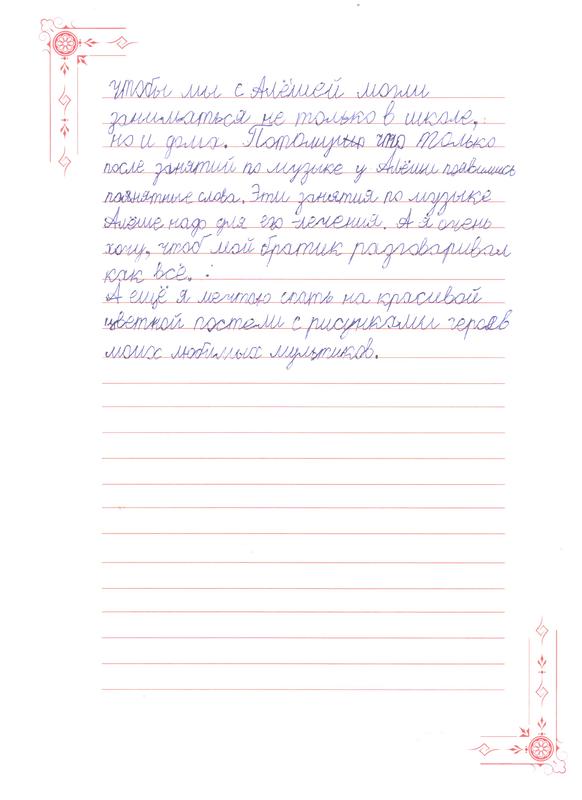 чтобы мы с Алёшей могли
заниматься не только в школе,
но и дома. Потому что только
после занятий по музыке у Алёши появились
понятные слова. Эти занятия по музыке
Алёше надо для его лечения. А я очень
хочу, чтоб мой братик разговаривал
как все.
А ещё я мечтаю спать на красивой
цветной постели с рисунками героев
моих любимых мультиков.